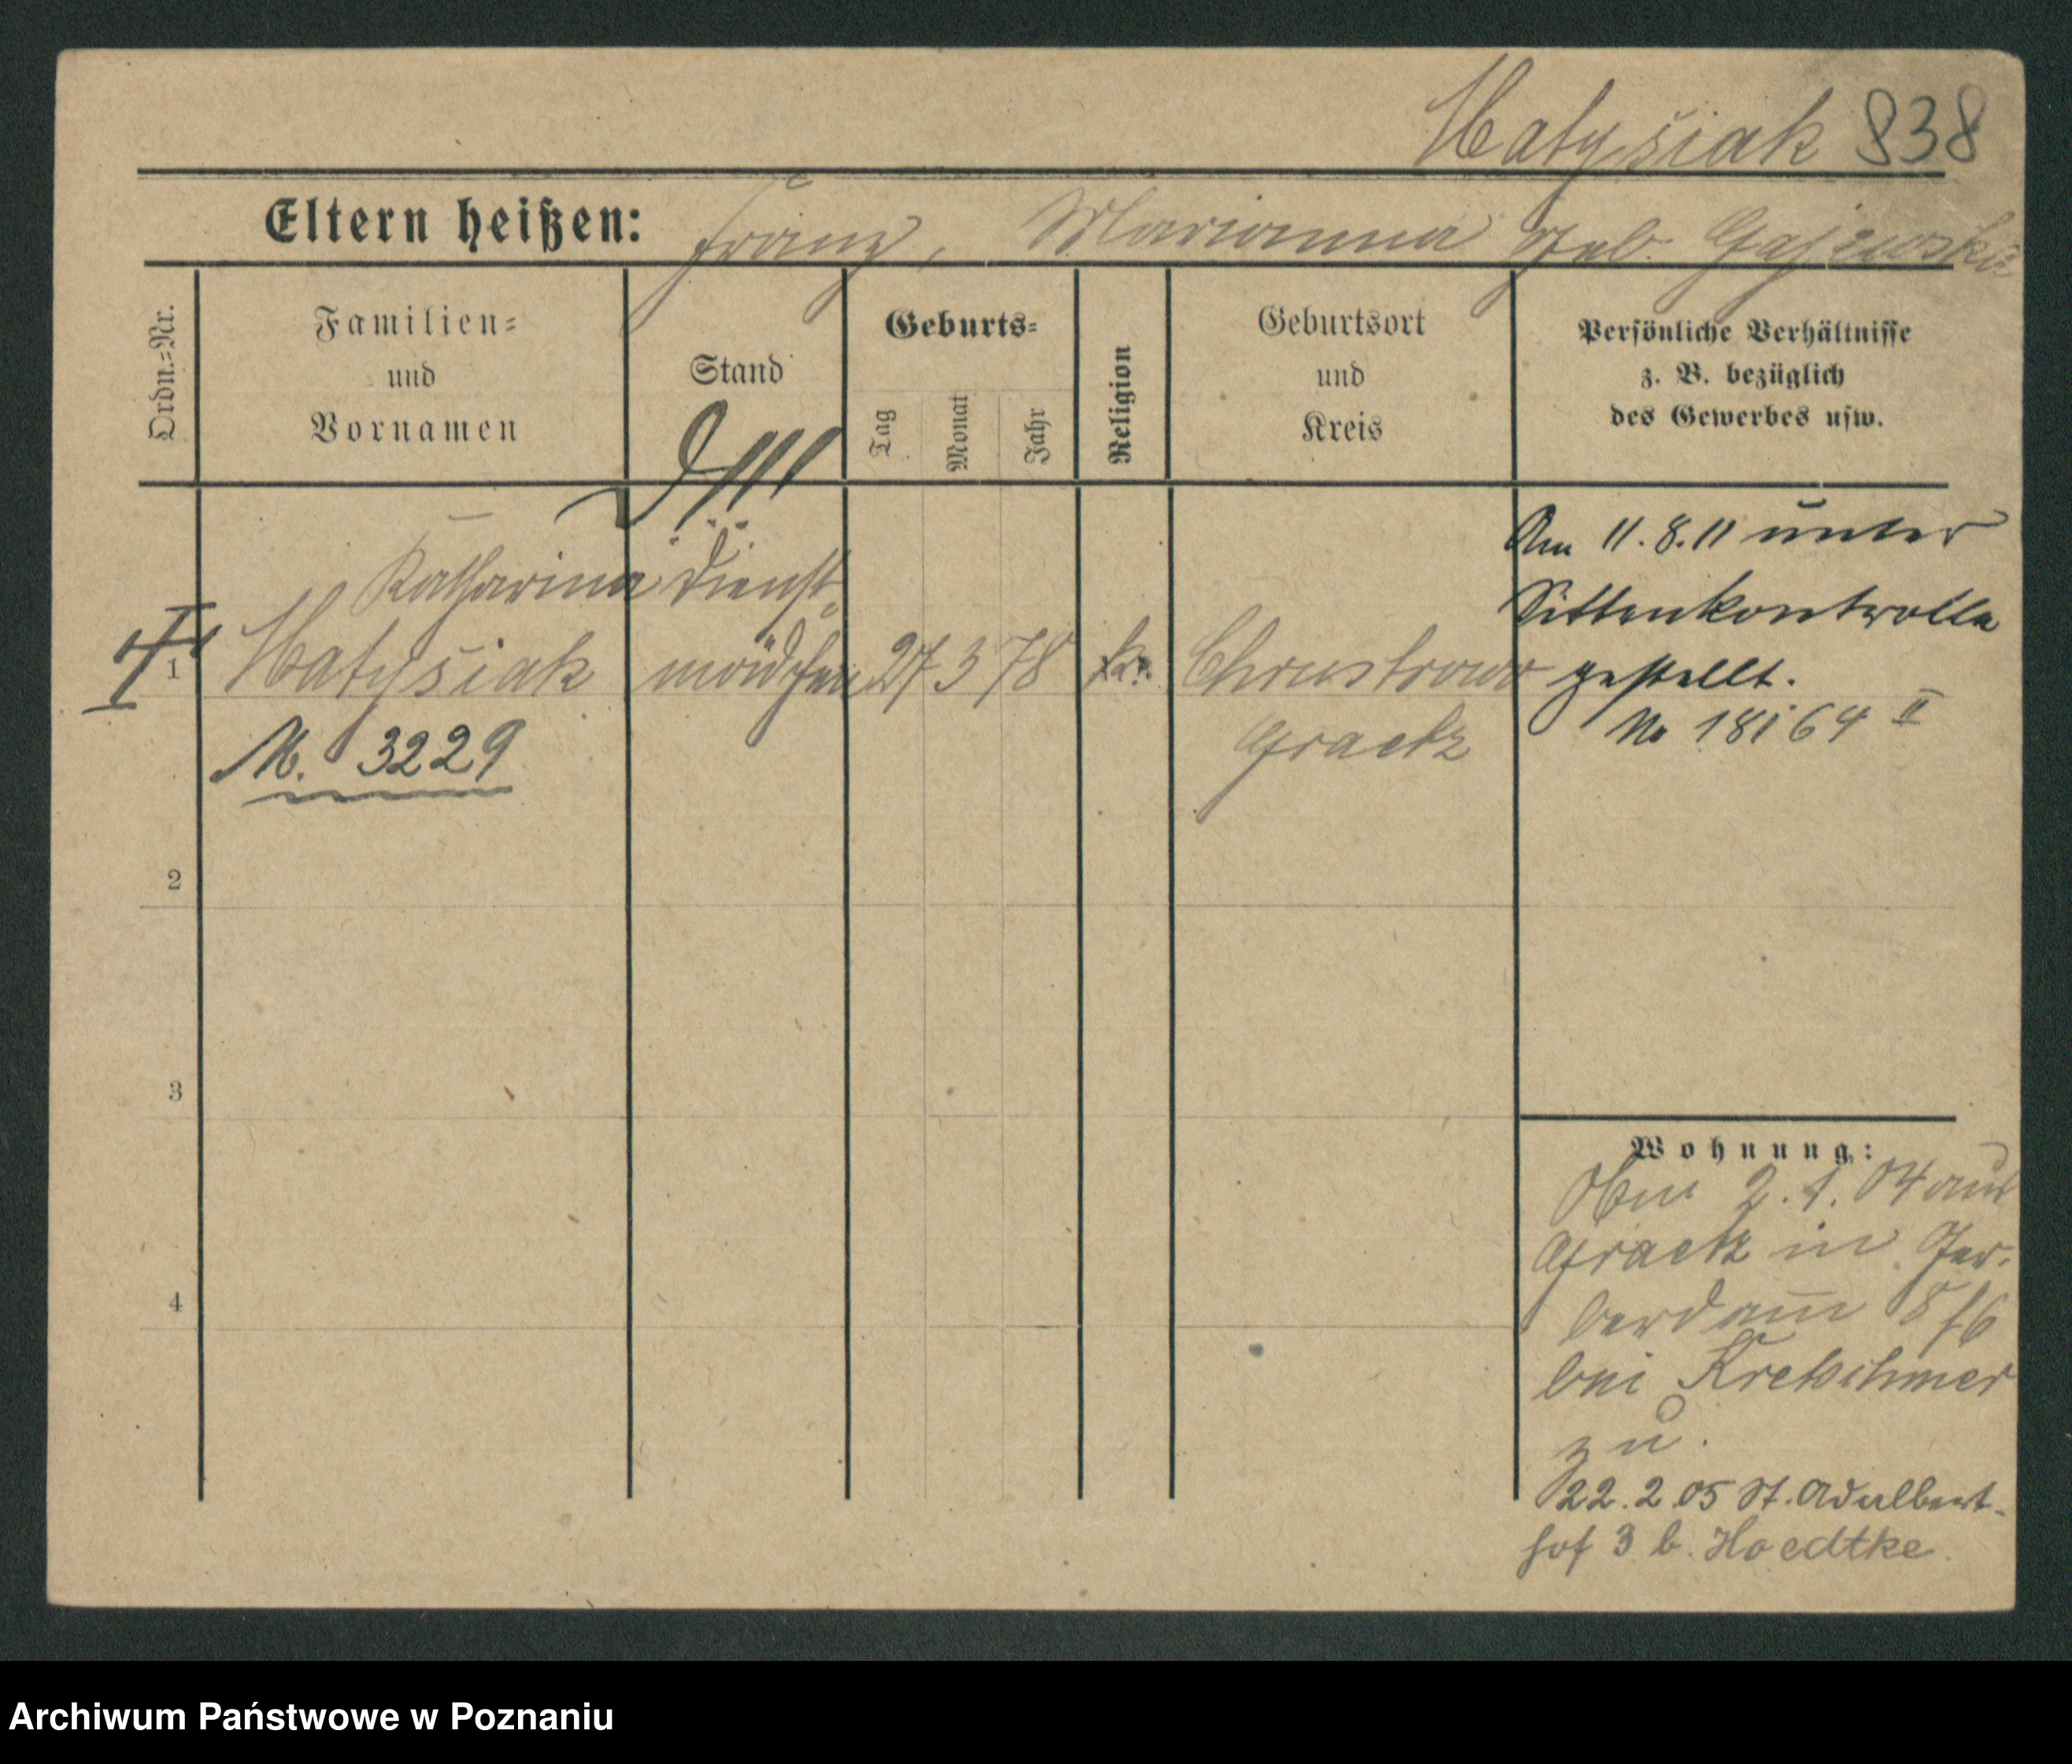 Matysiak 838
Eltern heißen: Franz, Marianna geb. Gajewska
Ordn.=Nr.
Familien=
und
Vornamen
Stand
Geburts=
Tag
Monat
Jahr
Religion
Geburtsort
und
Kreis
Persönliche Verhältnisse
z. B. bezüglich
des Gewerbes usw.
Katharina Dienst
1 Matysiak mädchen 27 3 78 k. Chrustowo
Graetz
M. 3229
Am 11.8.11 unter
Sittenkontrolle
gestellt.
No 18164 II
2
3
4
Wohnung:
Am 2.1.04 aus
Graetz in Ger-
berdam̅ 5/6
bei Kretschmer
zu.
22.2.05 St. Adalbert-
hof 3 b. Hoedtke
Archiwum Państwowe w Poznaniu